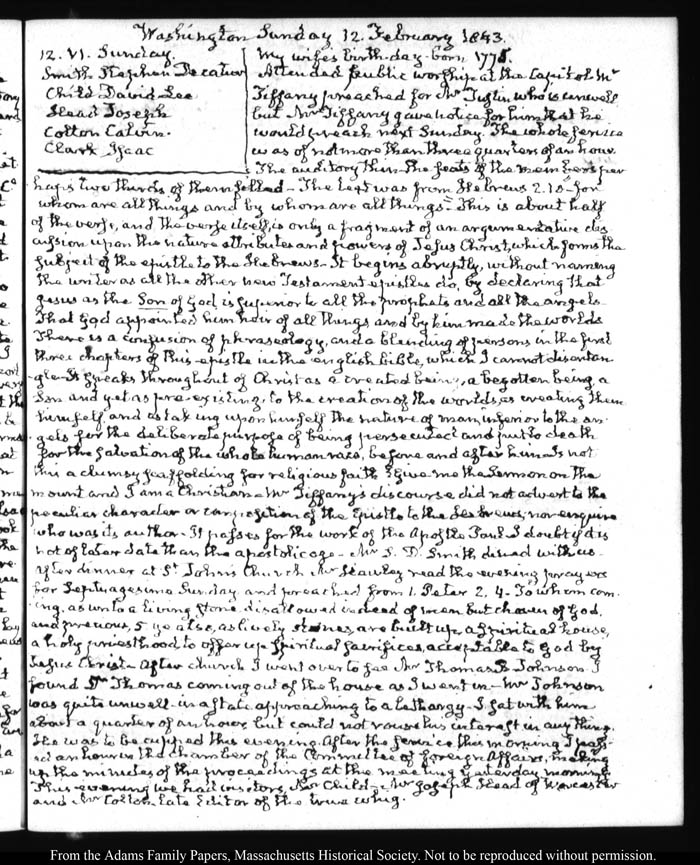 Washington Sunday 12. February 1843.
12. VI. Sunday.
Smith Stephen Decatur
Child David Lee
Head Joseph
Colton Calvin.
Clark Isaac
My wife's birth-day born 1775.
Attended public worship at the Capitol Mr
Tiffany preached for Mr Tustin who is unwell
but Mr Tiffany gave notice for him that he
would preach next Sunday. The whole service
was of not more than three quarters of an hour.
The auditory thin. The seats of the members per
haps two thirds of them filled— The text was from Hebrews 2.10— for
whom are all things and by whom are all things— This is about half
of the verse, and the verse itself is only a fragment of an argumentative dis
cussion upon the nature attributes and powers of Jesus Christ, which forms the
subject of the epistle to the Hebrews— It begins abruptly, without naming
the writer as all the other new Testament epistles do, by declaring that
Jesus as the Son of God is superior to all the prophets and all the angels.
That God appointed him heir of all things and by him made the worlds
There is a confusion of phraseology, and a blending of persons in the first
three chapters of this epistle in the english bible, which I cannot disentan
gle— It speaks throughout of Christ as a created being, a begotten being, a
Son and yet as pre-existing, to the creation of the worlds, as creating them
himself, and as taking upon himself the nature of man, inferior to the an-
gels for the deliberate purpose of being persecuted and put to death
for the salvation of the whole human race, before and after him— Is not
this a clumsy scaffolding for religious faith? Give me the Sermon on the
mount and I am a Christian— Mr Tiffany's discourse did not advert to the
peculiar character or composition of the Epistle to the Hebrews, nor enquire
who was its author— It passes for the work of the Apostle Paul— I doubt if it is
not of later date than the apostolic age— Mr S. D. Smith dined with us—
After dinner at St John's Church Mr Hawley read the evening prayers
for Septuagesima Sunday and preached from 1. Peter 2, 4. To whom com-
ing, as unto a living stone, disallowed indeed of men but chosen of God,
and precious, 5 ye also, as lively stones, are built up a spiritual house,
a holy priesthood to offer up spiritual sacrifices, acceptable to God by
Jesus Christ— After church I went over to see Mr Thomas Johnson I
found Dr Thomas coming out of the house as I went in— Mr Johnson
was quite unwell— in a state approaching to a lethargy— I sat with him
about a quarter of an hour but could not rouse his interest in any thing.
He was to be cupped this evening. After the service this morning I pass-
ed an hour in the chamber of the Committee of foreign Affairs, making
up the minutes of the proceedings at the meeting yesterday morning
This evening we had visitors, Mr Child— Mr Joseph Head of Worcester
and Mr Colton late Editor of the true whig.
From the Adams Family Papers, Massachusetts Historical Society. Not to be reproduced without permission.